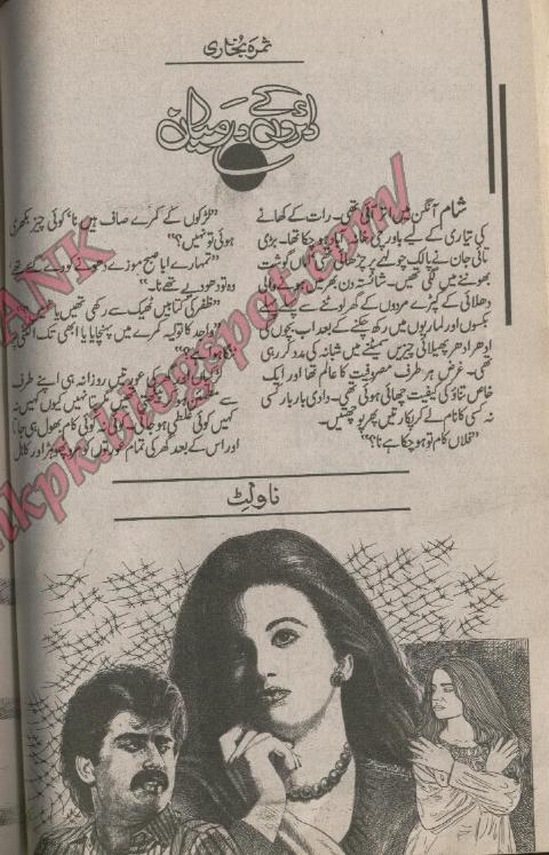 ثمرہ بخاری
دائروں کے درمیان
شام آنگن میں اتر آئی تھی۔ رات کے کھانے
کی تیاری کے لیے باورچی خانہ آباد ہو چکا تھا۔ بڑی
تائی جان نے پالک چولہے پر چڑھائی تھی اماں گوشت
بھوننے میں لگی تھیں۔ شائستہ دن بھر میں ہونے والی
دھلائی کے کپڑے مردوں کے گھر لوٹنے سے پہلے
بکسوں اور الماریوں میں رکھ چکنے کے بعد اب بچوں کی
ادھر ادھر پھیلائی چیزیں سمیٹنے میں شبانہ کی مدد کر رہی
تھی۔ غرض ہر طرف مصروفیت کا عالم تھا اور ایک
خاص تناؤ کی کیفیت چھائی ہوئی تھی۔ دادی بار بار کسی
نہ کسی کا نام لے کر پکارتیں پھر پوچھتیں۔
"فلاں کام تو ہو چکا ہے نا؟"
"لڑکوں کے کمرے صاف ہیں نا، کوئی چیز بکھری
ہوئی تو نہیں؟"
"تمہارے ابا صبح موزے دھونے کو دے گئے تھے
وہ تو دھو دیے تھے نا۔"
"ظفر کی کتابیں ٹھیک سے رکھی تھیں یا
"واحد کا تولیہ کمرے میں پہنچایا یا ابھی تک
ہوا ہے؟"
کی عورتیں روزانہ ہی اپنے طرف
سے نہیں کیوں کہیں نہ
کہیں کوئی غلطی ہو جاتی۔ کوئی نہ کوئی کام بھول ہی جاتا
اور اس کے بعد گھر کی تمام عورتوں کو پھوہڑ اور کاہل
ناولٹ
ANK
nkpk.blogspot.com/